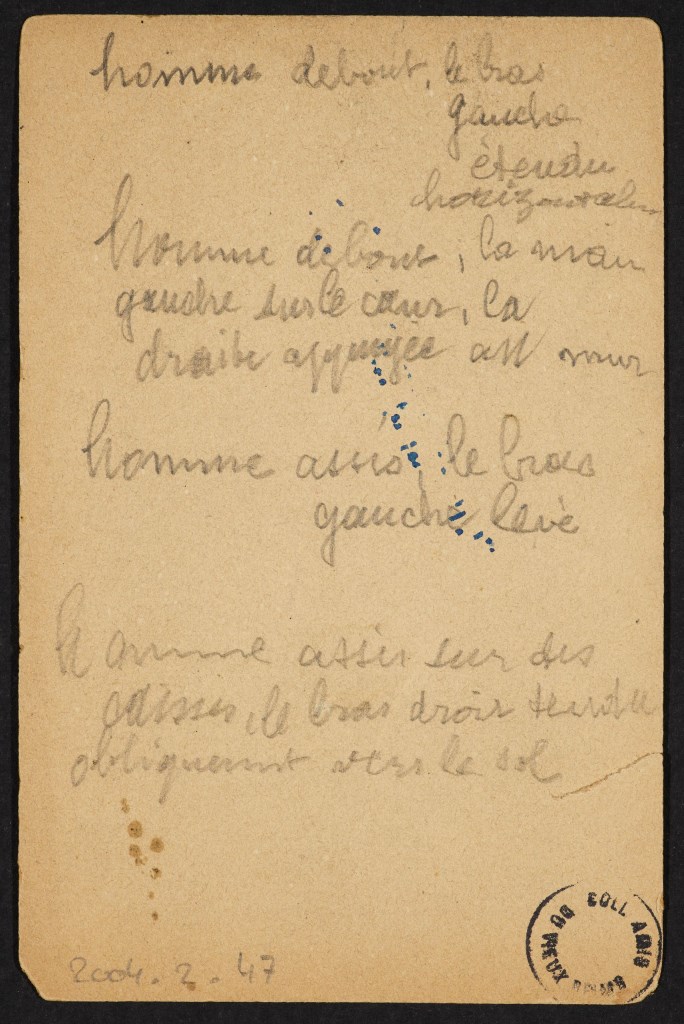 homme debout, le bras
gauche
étendu
horizontalem
homme debout, la main
gauche sur le cœur, la
droite appuyée au mur
homme assis, le bras
gauche levé
homme assis sur des
caisses, le bras droit tendu
obliquement vers le sol
COLL AMIS
DU VIEUX
REIMS
2004. 2. 47